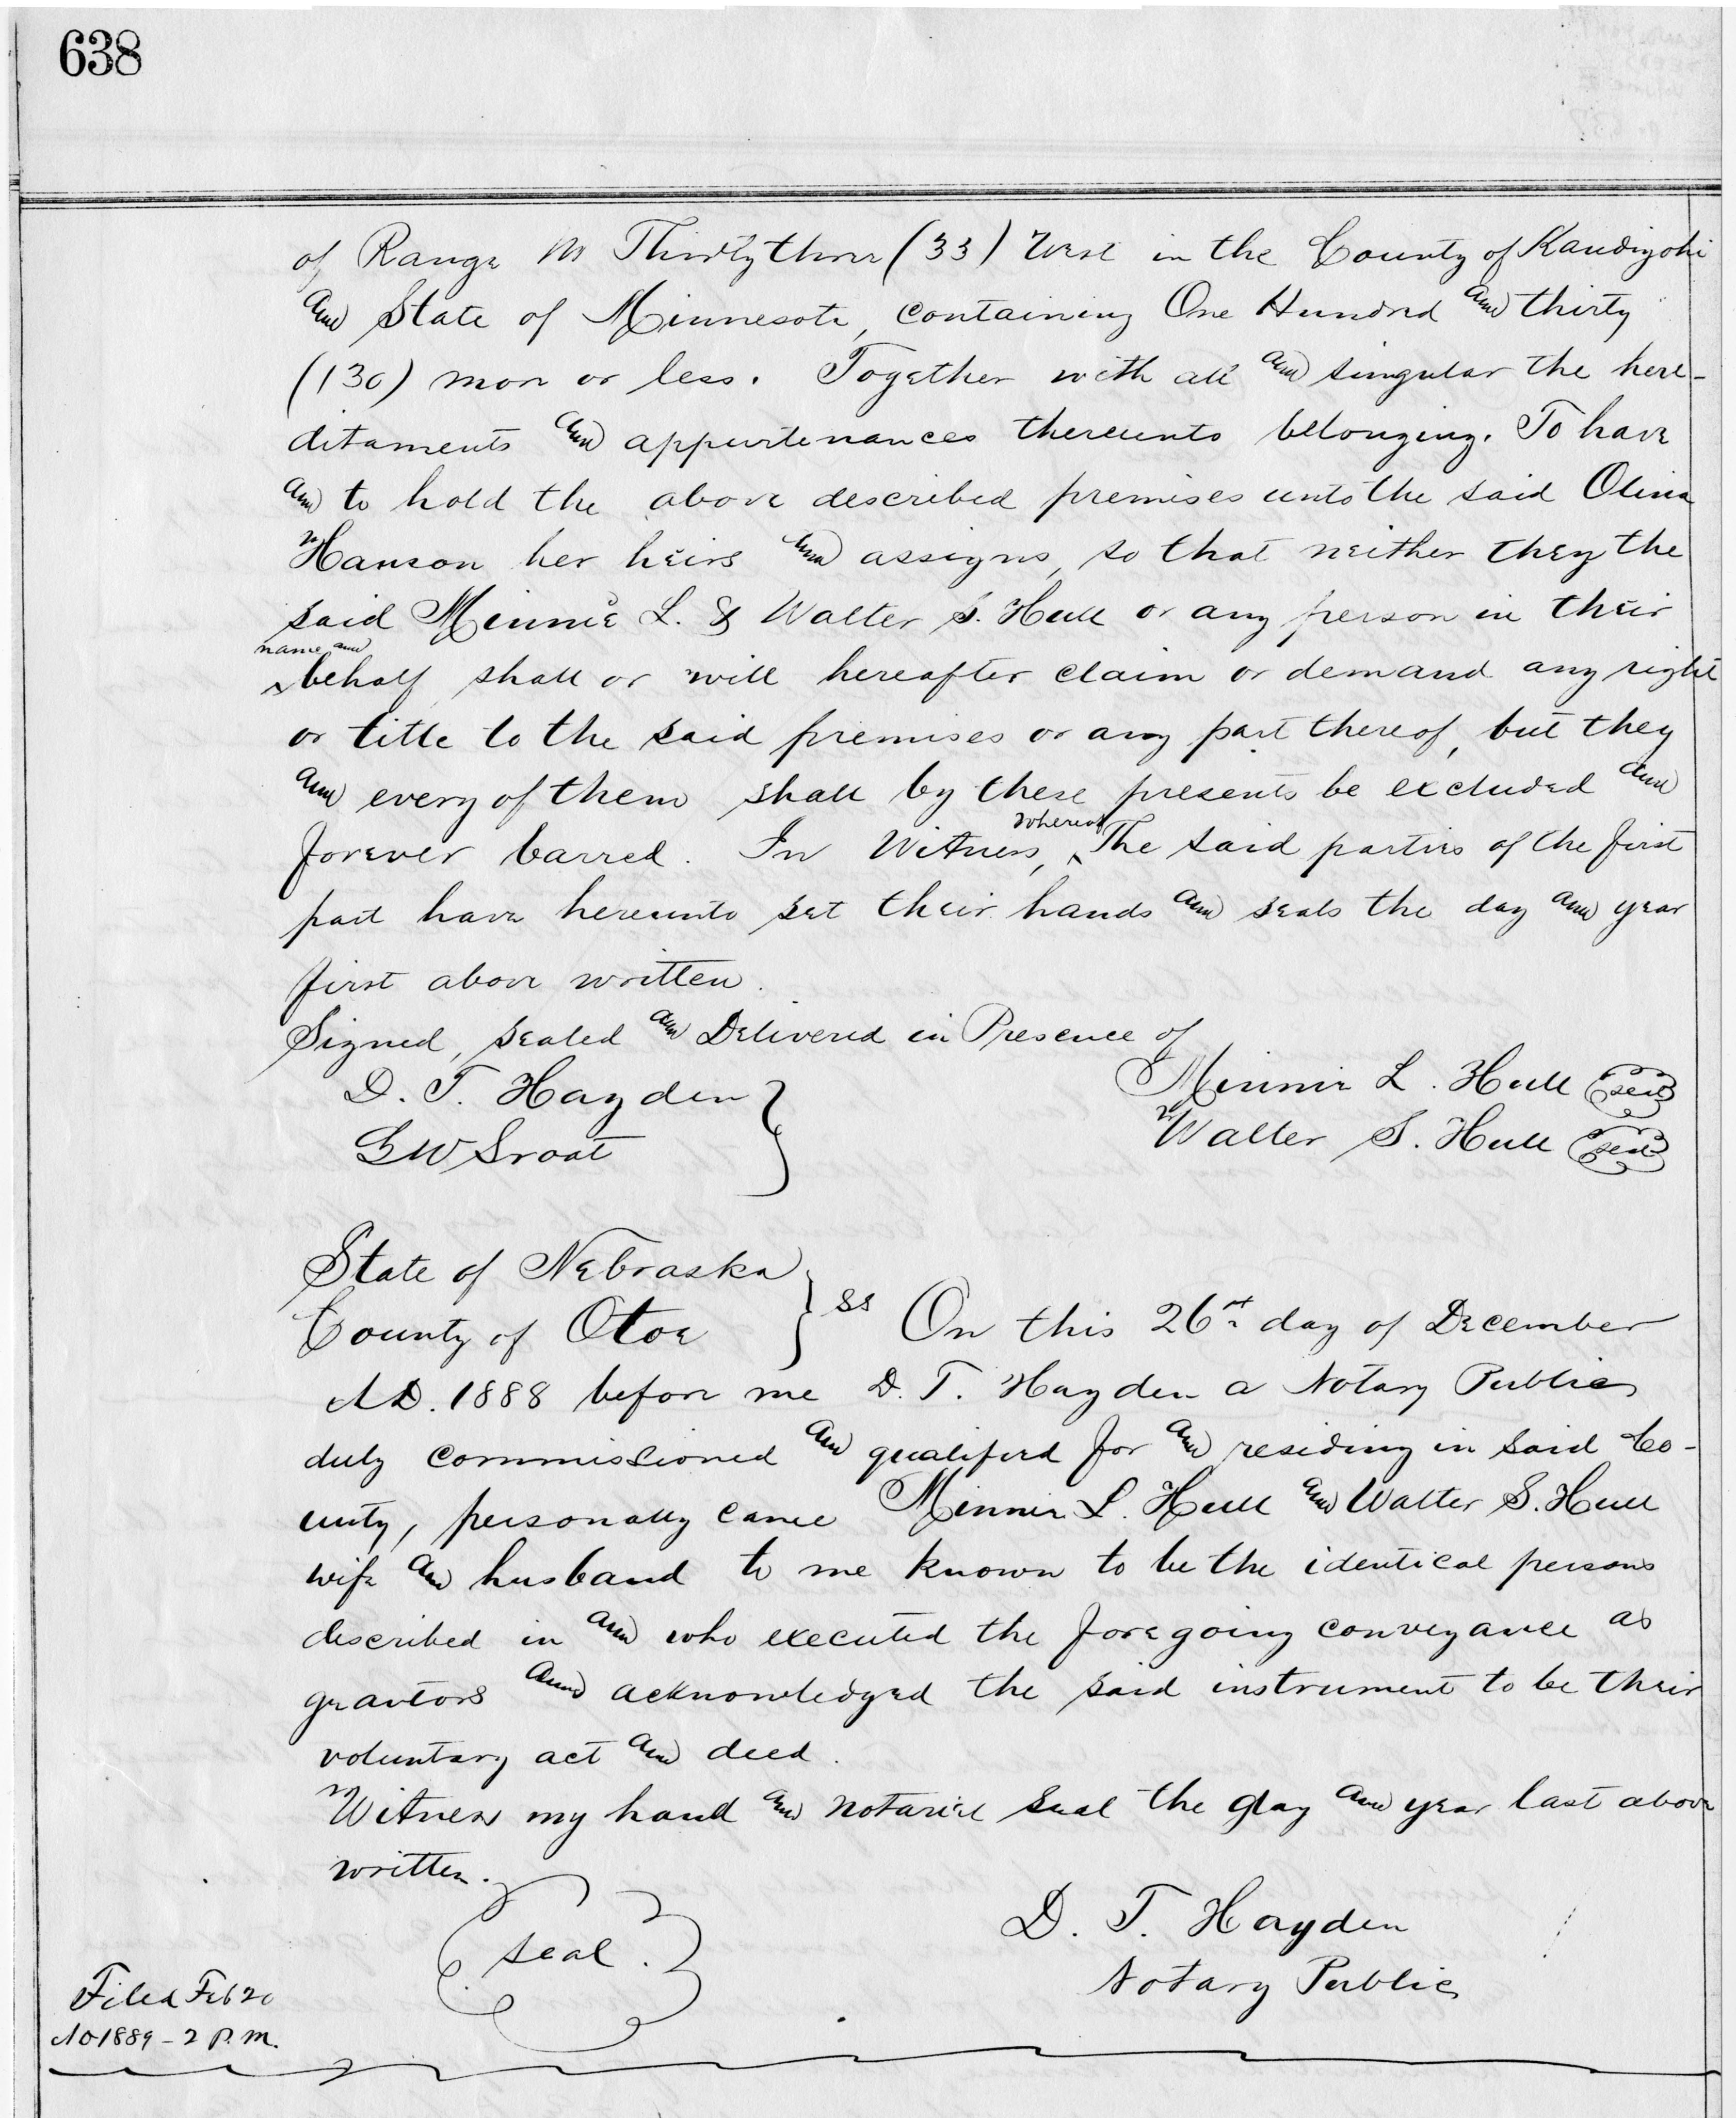 638
of Range No Thirty three (33) West in the County of Kandiyohi
and State of Minnesota, containing One Hundred and thirty
(130) more or less. Together with all and singular the here-
ditaments and appurtenances thereunto belonging. To have
and to hold the above described premises unto the said Olina
Hanson her heirs and assigns, so that neither they the
said Minnie L. & Walter S. Hull or any person in their
name and
behalf shall or will hereafter claim or demand any right
or title to the said premises or any part thereof, but they
and every of them shall by these presents be excluded and
whereof
forever barred. In Witness, The said parties of the first
part have hereunto set their hands and seals the day and year
first above written.
Signed, sealed and Delivered in Presence of
D. T. Hayden
Minnie L. Hull seal
G W
Walter S. Hull seal
State of Nebraska
County of Otoe } ss On this 26th day of December
A.D. 1888 before me D. T. Hayden a Notary Public
duly commissioned and qualified for and residing in said Co-
unty, personally came Minnie L. Hull and Walter S. Hull
wife and husband to me known to be the identical persons
described in and who executed the foregoing conveyance as
grantors and acknowledged the said instrument to be their
voluntary act and deed.
Witness my hand and notarial seal the day and year last above
written.
seal.
D. T. Hayden
Notary Public
Filed Feb 20
AD 1889 - 2 P.M.